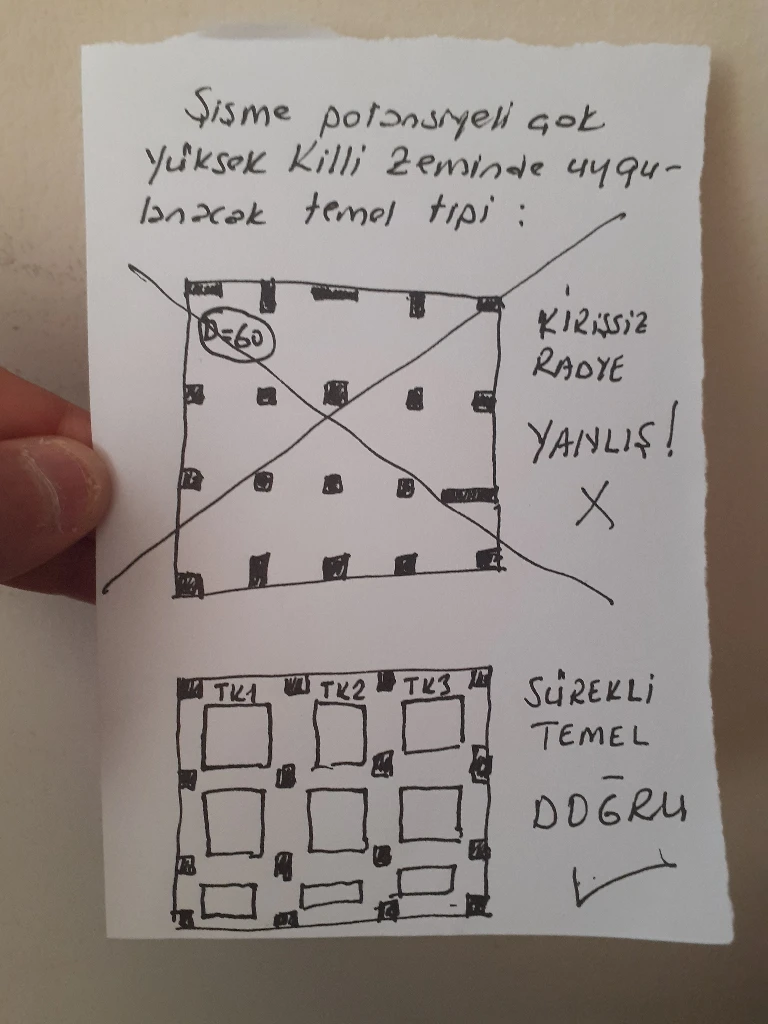 Şişme potansiyeli çok
yüksek killi zeminde uygu-
lanacak temel tipi :
D=60
KİRİŞSİZ
RADYE
YANLIŞ!
X
TK1 TK2 TK3
SÜREKLİ
TEMEL
DOĞRU